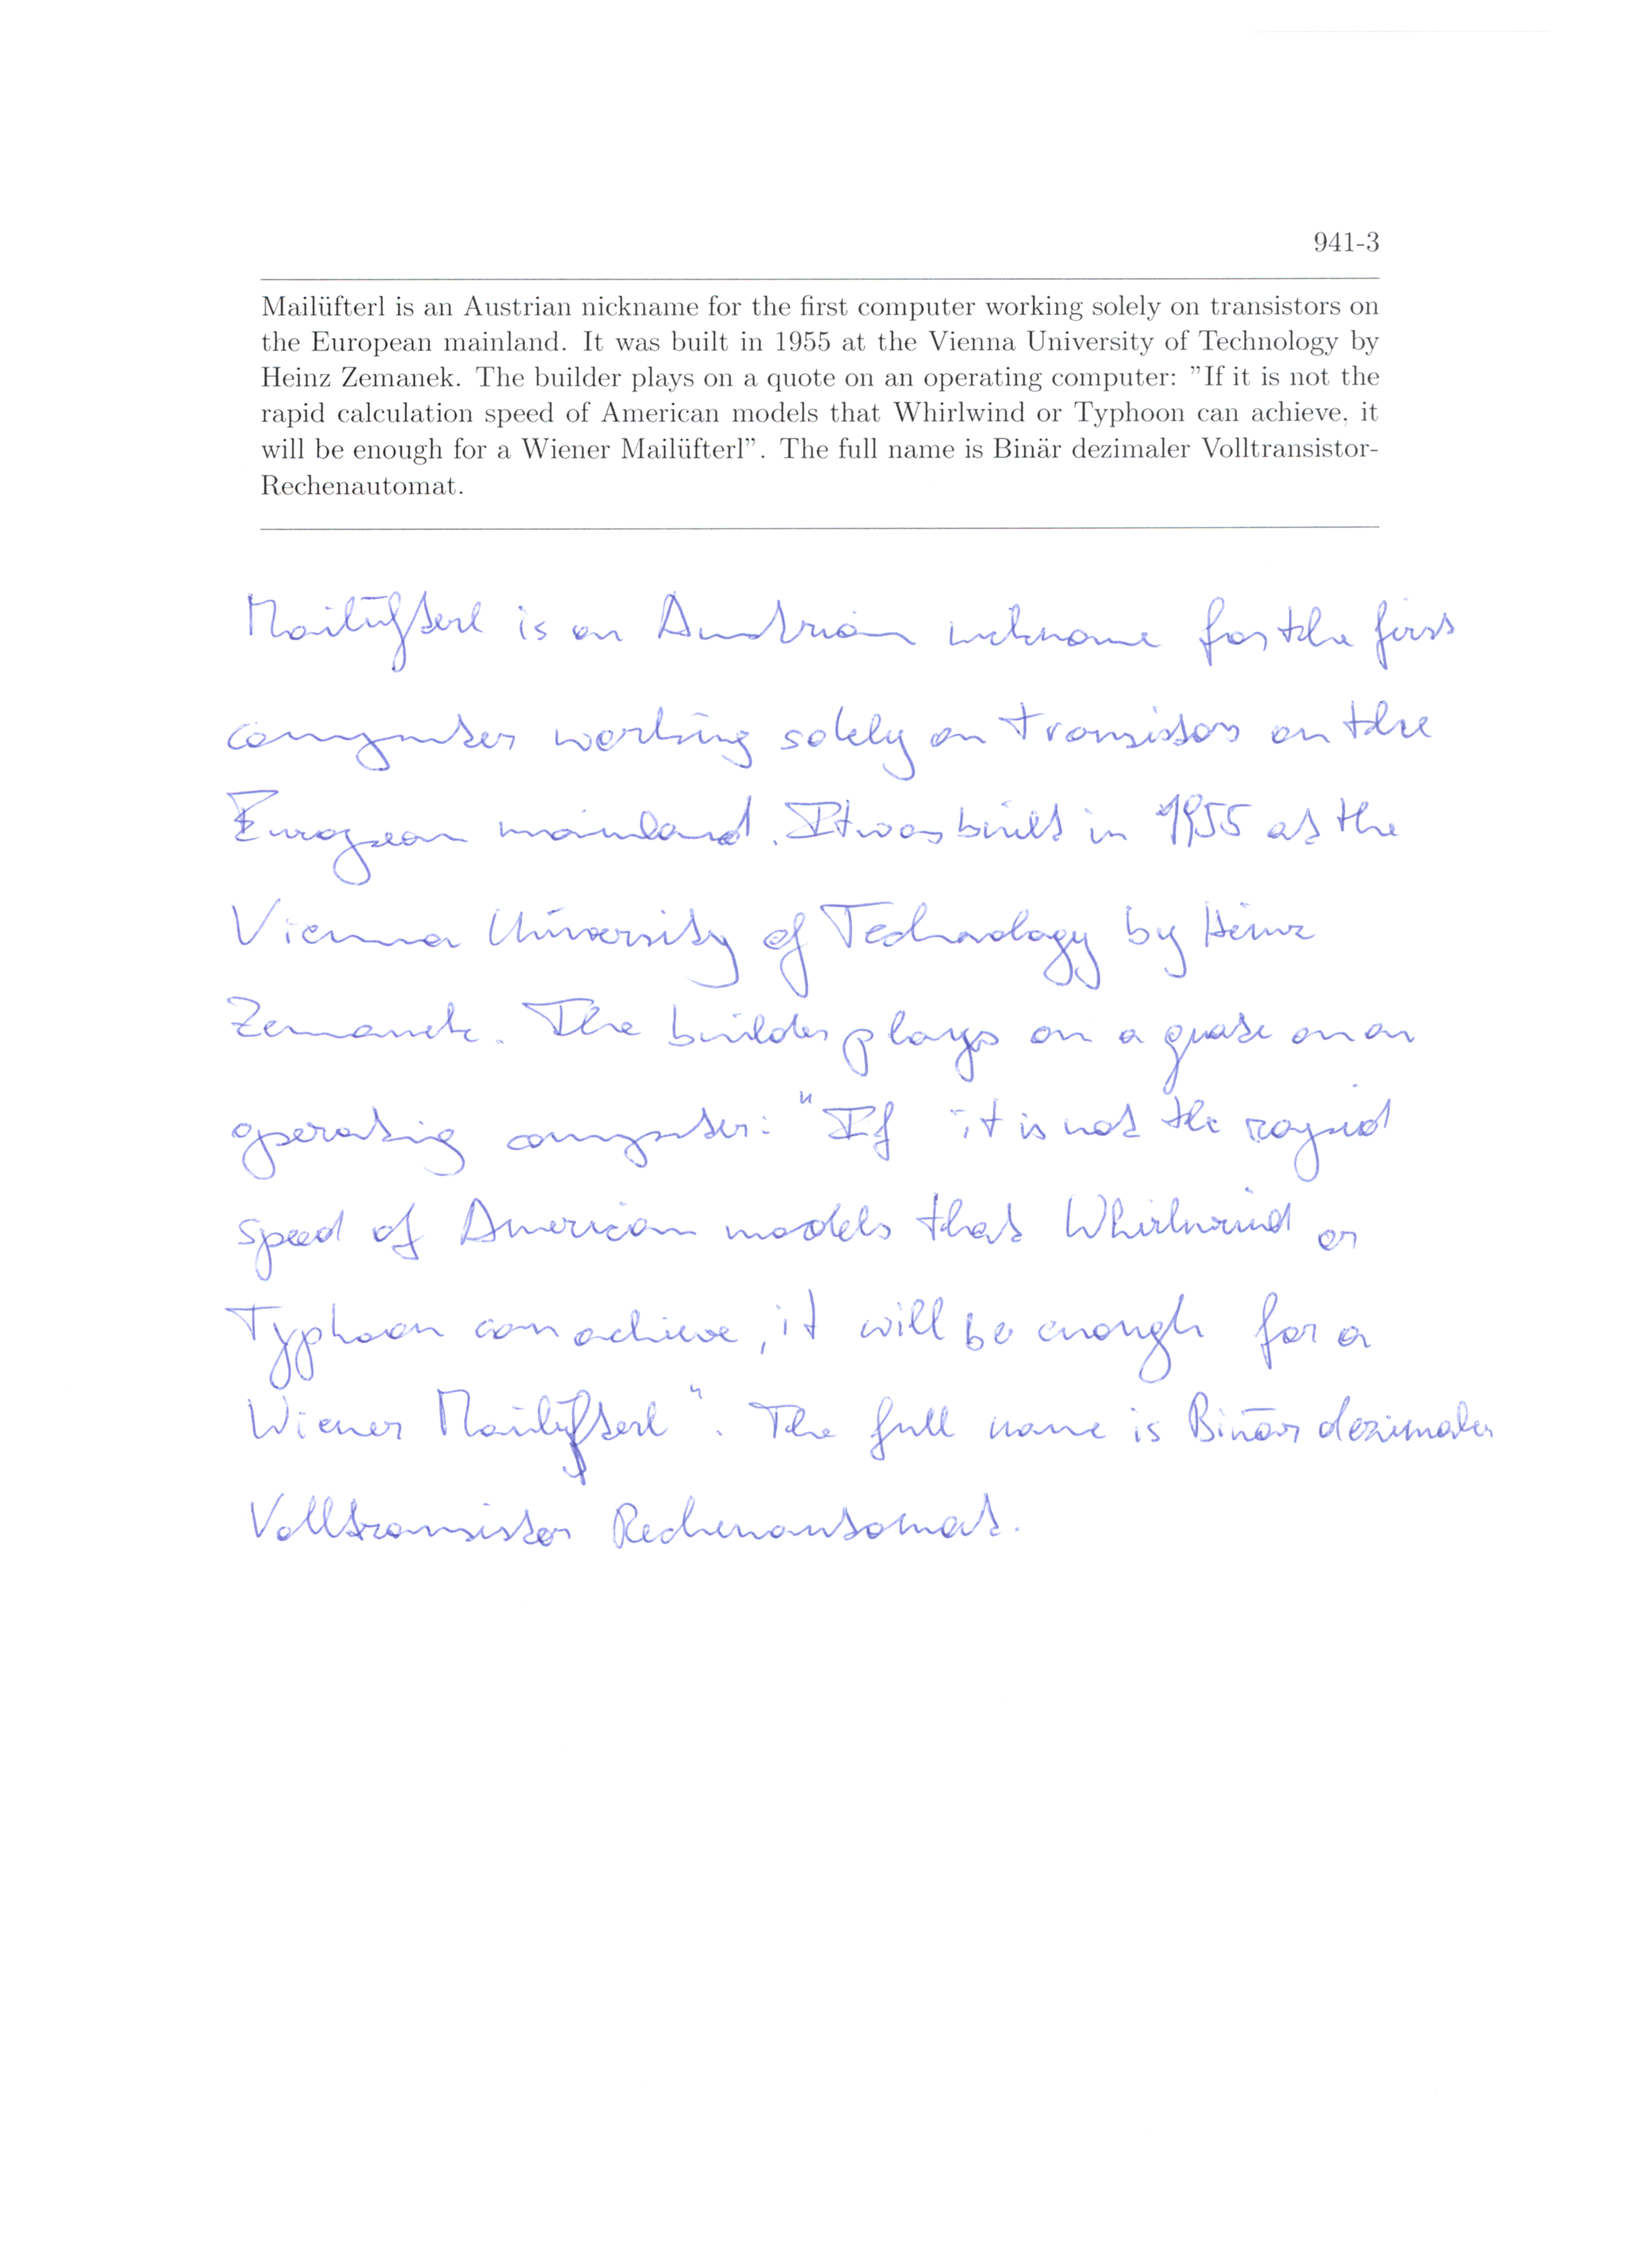 941-3
Mailüfterl is an Austrian nickname for the first computer working solely on transistors on
the European mainland. It was built in 1955 at the Vienna University of Technology by
Heinz Zemanek. The builder plays on a quote on an operating computer: "If it is not the
rapid calculation speed of American models that Whirlwind or Typhoon can achieve, it
will be enough for a Wiener Mailüfterl". The full name is Binär dezimaler Volltransistor-
Rechenautomat.
Mailüfterl is an Austrian nickname for the first
computer working solely on transistors on the
European mainland. It was built in 1955 at the
Vienna University of Technology by Heinz
Zemanek. The builder plays on a quote on an
operating computer: "If it is not the rapid
speed of American models that Whirlwind or
Typhoon can achieve, it will be enough for a
Wiener Mailüfterl". The full name is Binär dezimaler
Volltransistor Rechenautomat.